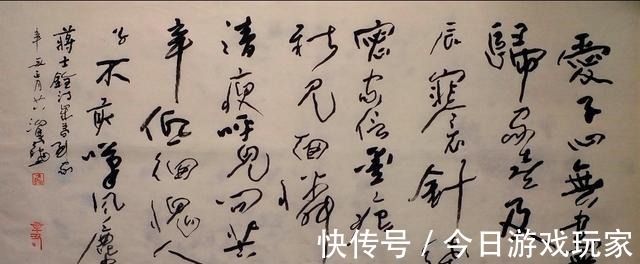 愛子心無尽
歸家喜及
辰寒衣針線
密家信墨痕
新見面憐
清瘦呼兒問苦
辛低徊愧人
子不敢嘆風塵
蔣士銓詩歲暮到家
辛丑正月廿六
快传号 / 今日游戏玩家